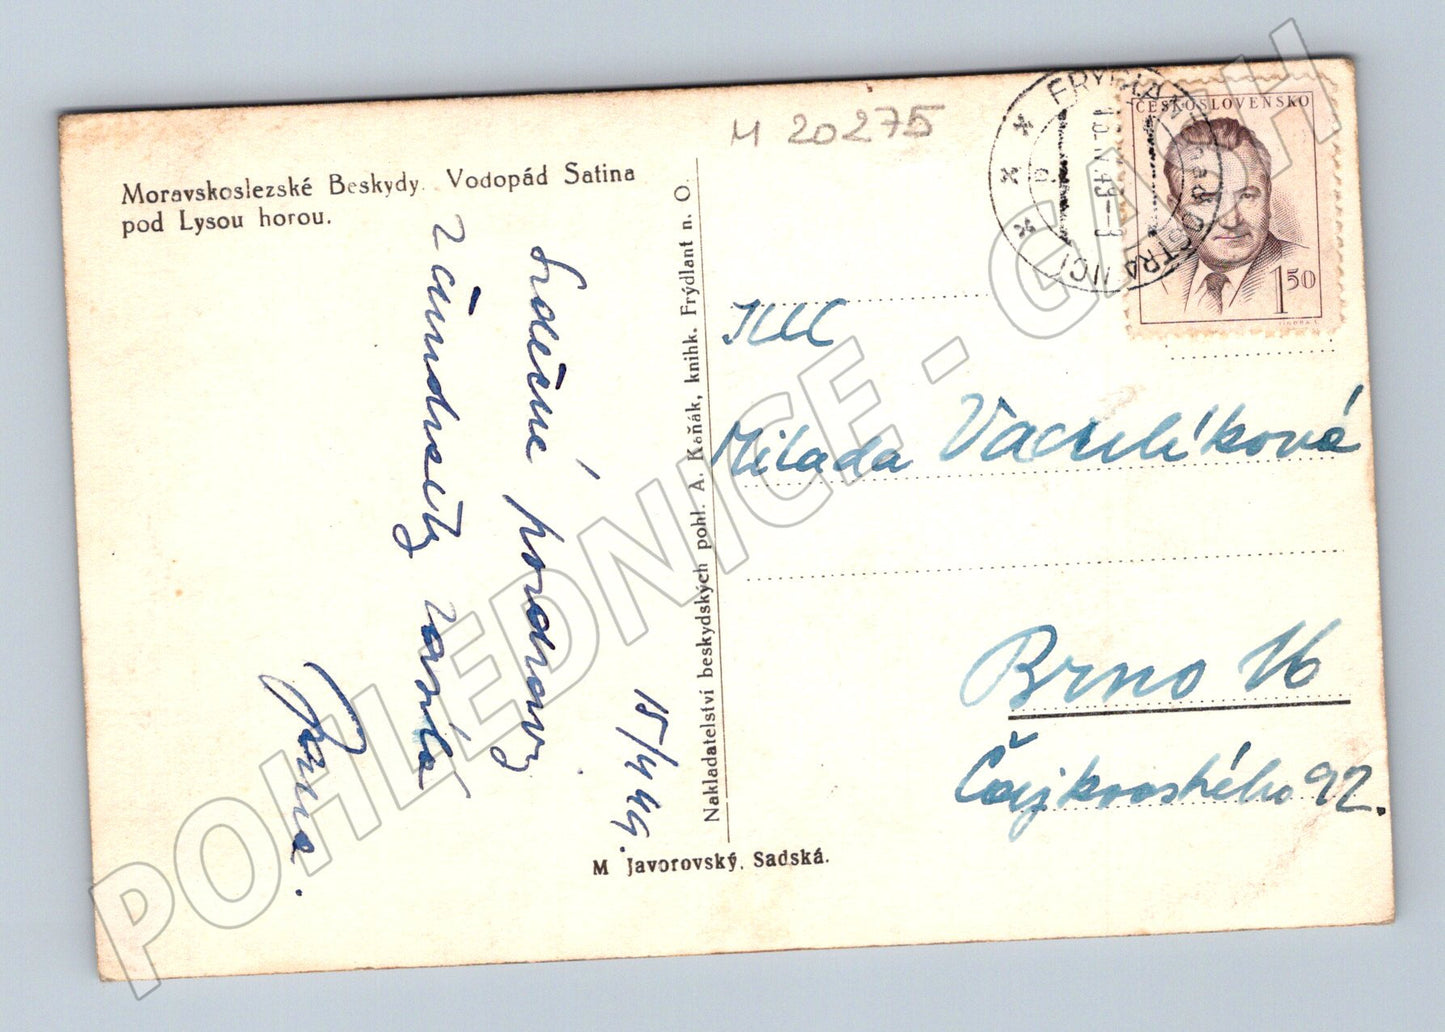 M 20275
Moravskoslezské Beskydy. Vodopád Satina
pod Lysou horou.
Srdečné pozdravy
z
zasílá
15/4 49.
Nakladatelství beskydských pohl. A. Kaňák, knihk. Frýdlant n. O.
M Javorovský, Sadská.
FRÝDLANT nad OSTRAVICÍ
15.IV.49-3
ČESKOSLOVENSKO
1 50
Milada
Brno 16
Čajkovského 92.
POHLEDNICE - GMH